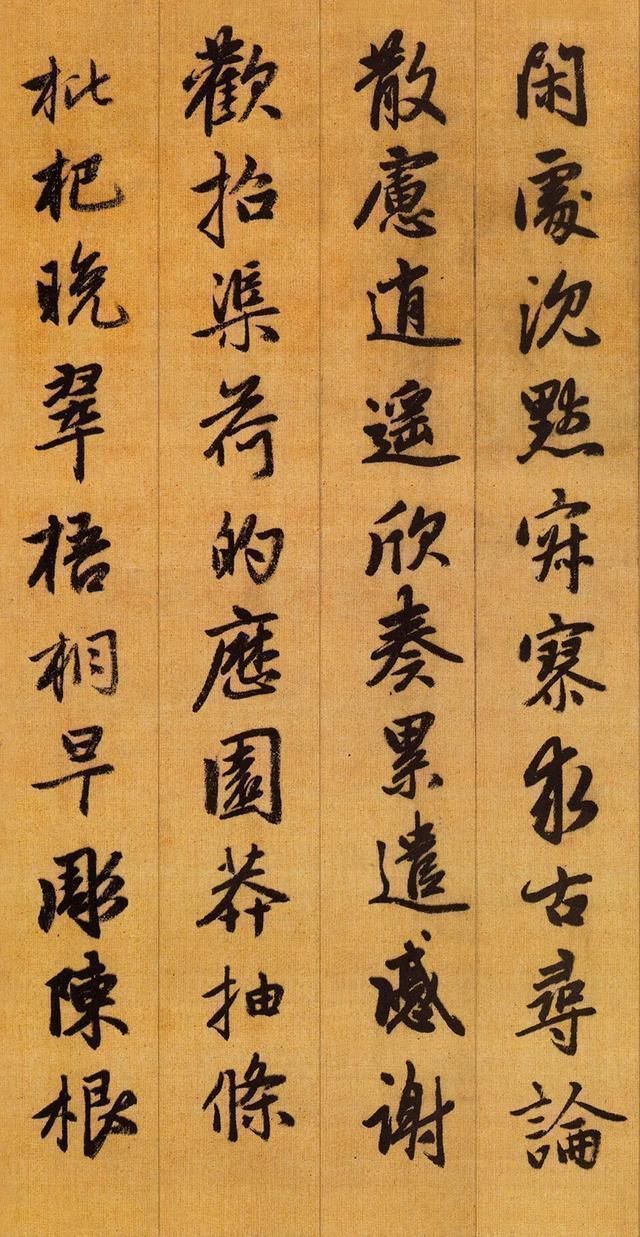 閑處沈默寂寥求古尋論
散慮逍遙欣奏累遣慼謝
歡招渠荷的歷園莽抽條
枇杷晚翠梧桐早彫陳根